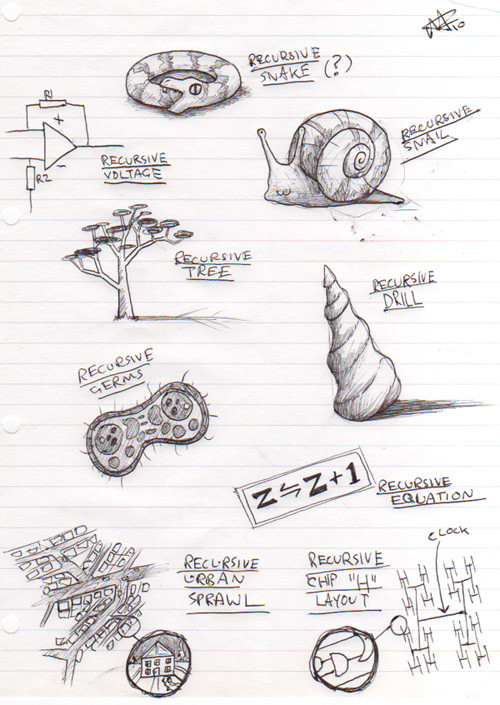 10
RECURSIVE
SNAKE (?)
R1
+
-
R2
RECURSIVE
VOLTAGE
RECURSIVE
SNAIL
RECURSIVE
TREE
RECURSIVE
DRILL
RECURSIVE
GERMS
Z ⇋ Z + 1
RECURSIVE
EQUATION
RECURSIVE
URBAN
SPRAWL
RECURSIVE
CHIP "H"
LAYOUT
CLOCK